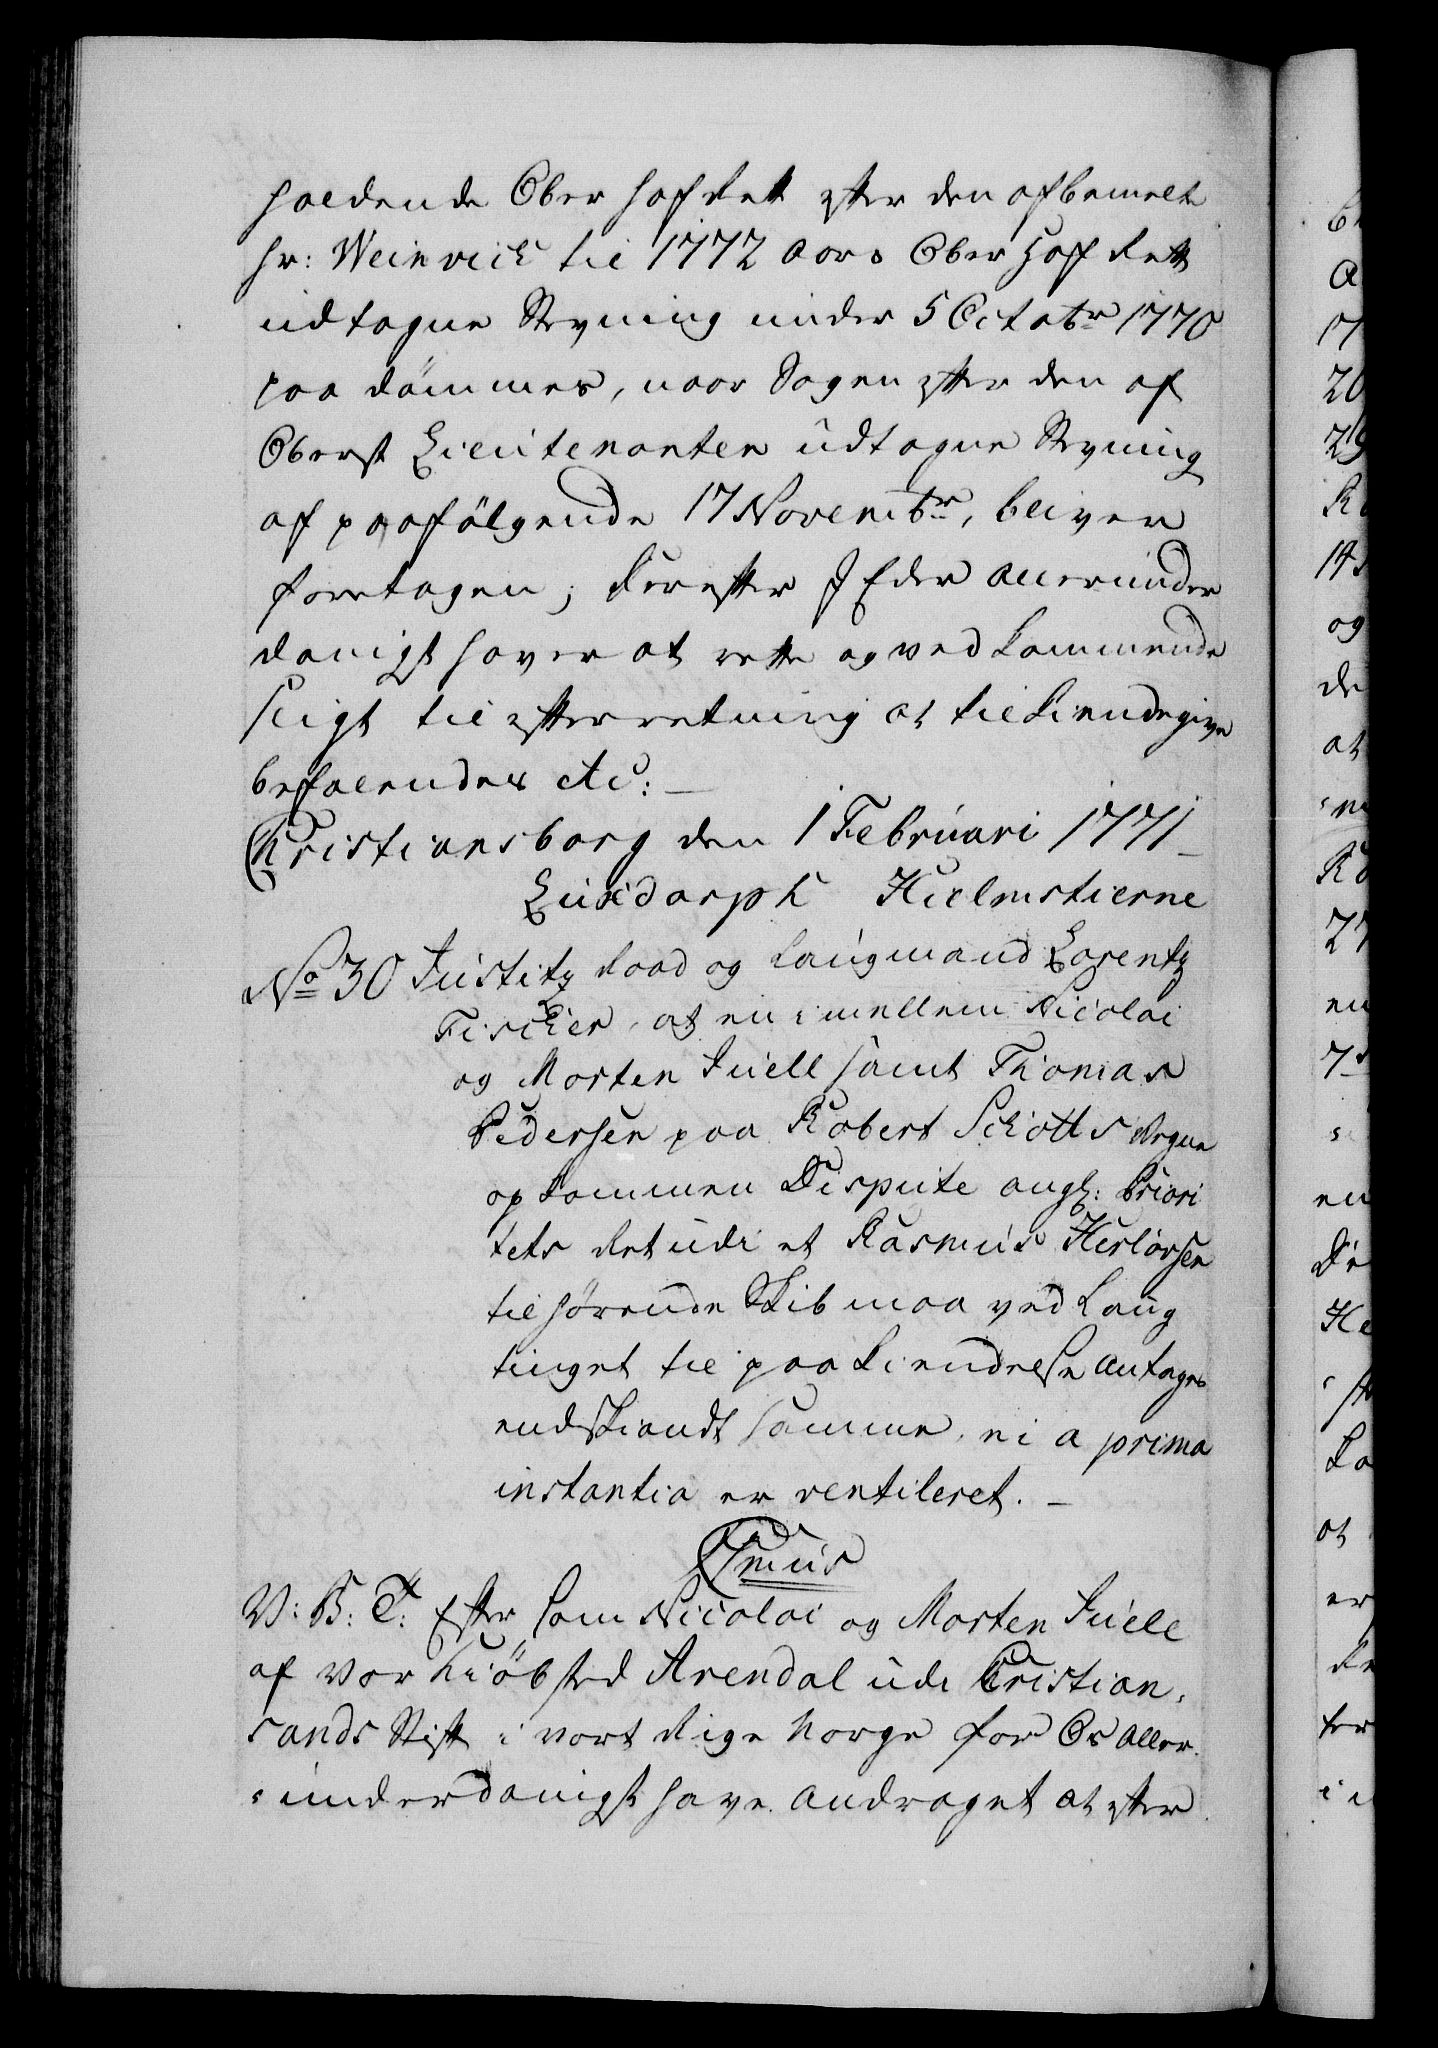 holdende Ober Hof Rett efter den af bemelte
Hr: Weinrich til 1772 Aars Ober Hoff Rett
udtagne Stevning under 5 Octobr 1770
paa dömmes, naar Sagen efter den af
Oberst Lieutenanten udtagne Stevning
af paafölgende 17 Novembr, bliver
foretagen; Derefter I Eder allerunder
danigst haver at rette og ved kommende
sligt til efterretning at tilkiendegive
befalendes etc: —
Christiansborg den 1 Februari 1771
Luxdorph Hielmstierne
No 30 Justitz Raad og Laugmand Lorentz
Fischer, at en imellem Nicolai
og Morten Juell samt Thomas
Pedersen paa Robert Schotts Vegne
opkommen Dispute angl: Priori
tets Ret udi et Rasmus Herlövsen
tilhørende Skib maa ved Laug
tinget til paakiendelse antages
endskiøndt samme ei a prima
instantia er ventileret. —
Csmus
V: B: T: Efter som Nicolai og Morten Juell
af vor Kiöbsted Arendal udi Cristian,
sands Stift i vort Rige Norge for Os Aller.
underdanigst have andraget at efter